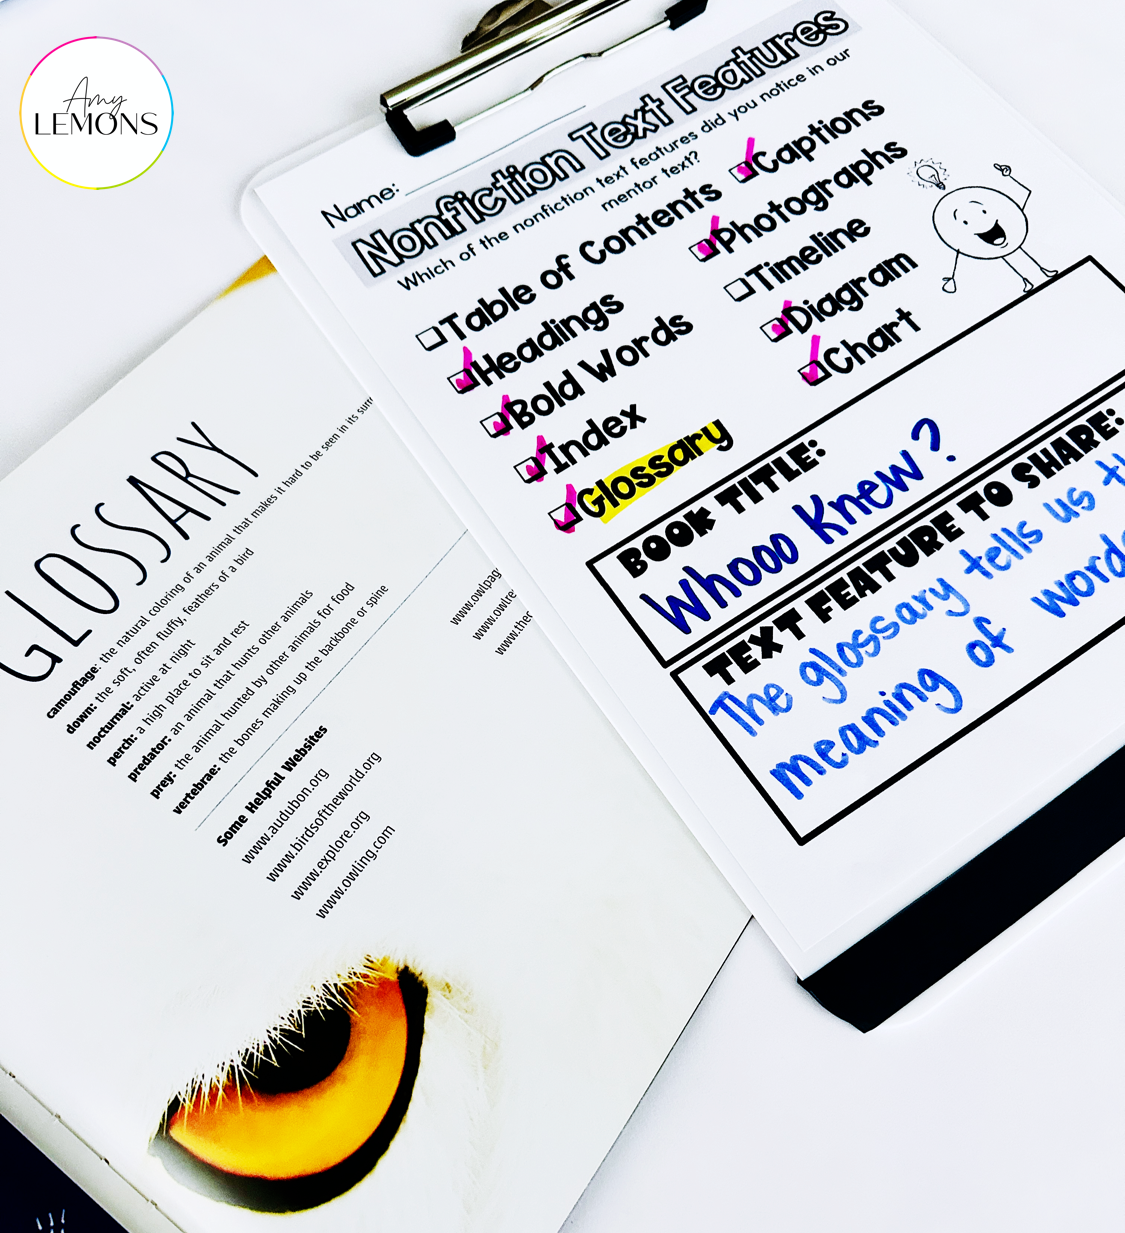 Amy
LEMONS
Name:
Nonfiction Text Features
Which of the nonfiction text features did you notice in our
mentor text?
Table of Contents
Headings
Bold Words
Index
Glossary
Captions
Photographs
Timeline
Diagram
Chart
BOOK TITLE:
Whooo Knew?
TEXT FEATURE TO SHARE:
The glossary tells us
meaning of
GLOSSARY
camouflage: the natural coloring of an animal that makes it hard to be seen in its
down: the soft, often fluffy, feathers of a bird
nocturnal: active at night
perch: a high place to sit and rest
predator: an animal that hunts other animals
prey: the animal hunted by other animals for food
vertebrae: the bones making up the backbone or spine
Some Helpful Websites
www.audubon.org
www.birdsoftheworld.org
www.explore.org
www.owling.com